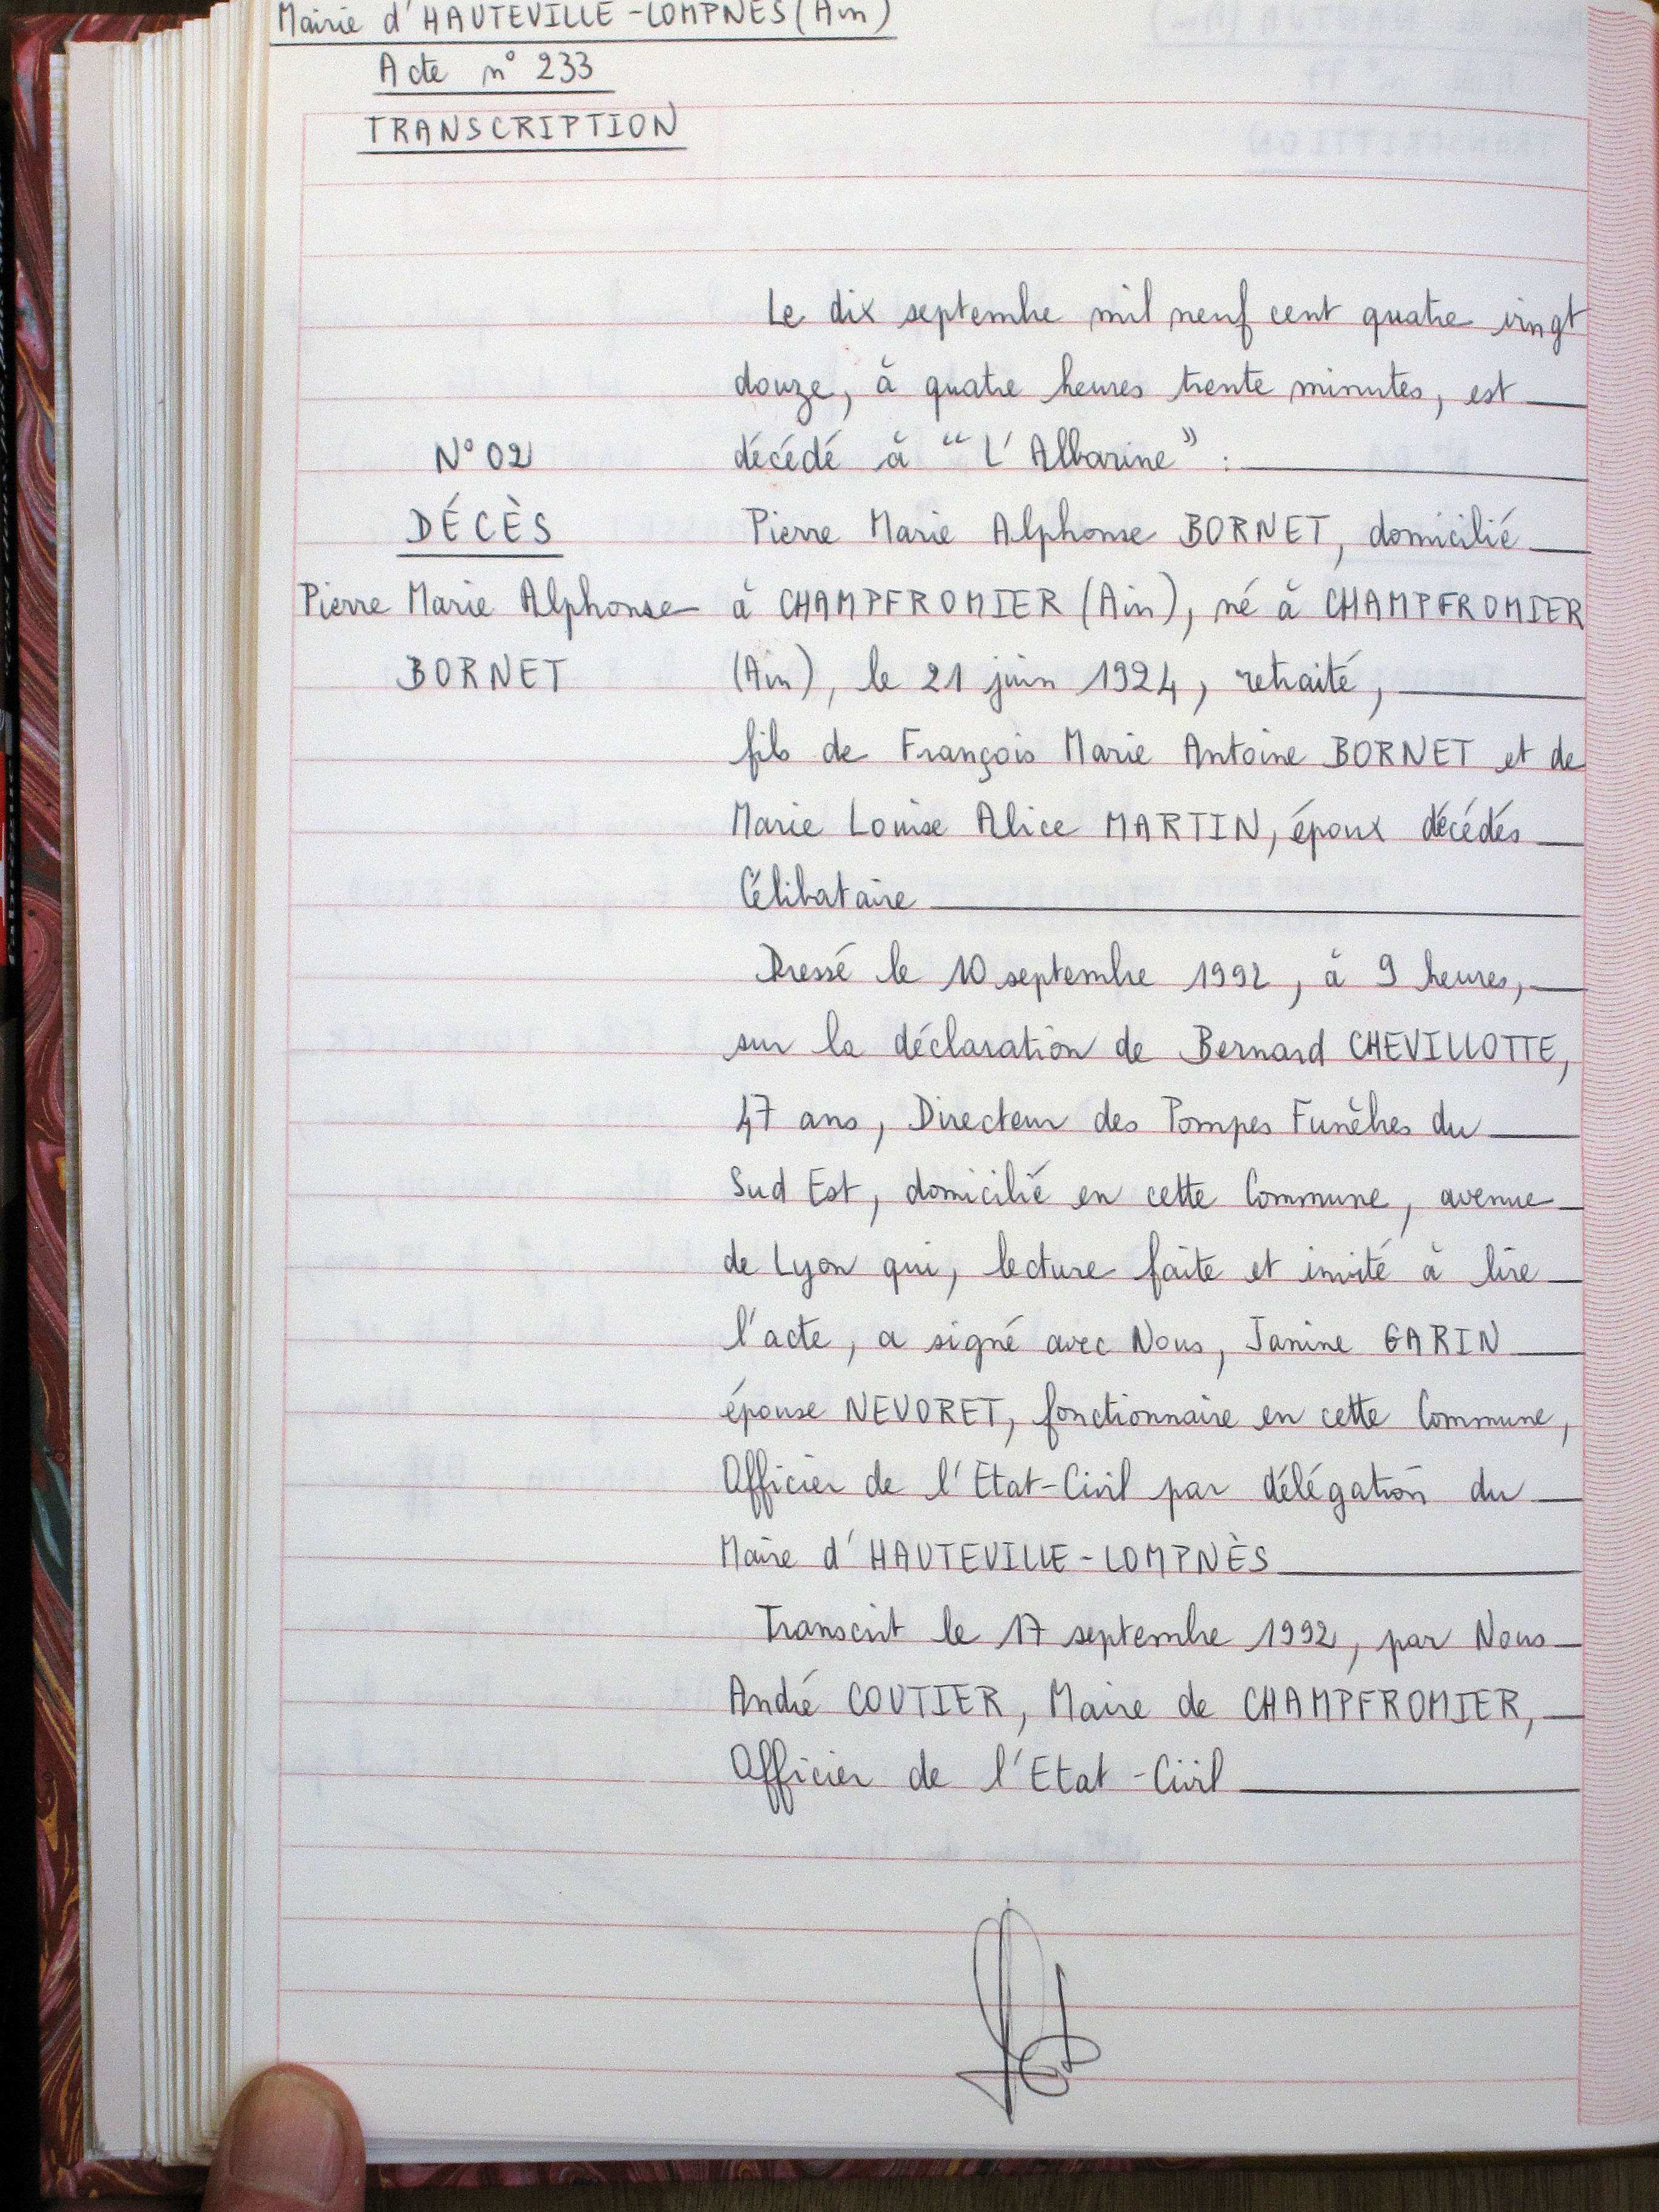 Mairie d'HAUTEVILLE-LOMPNES (Ain)
Acte n° 233
TRANSCRIPTION
Le dix septembre mil neuf cent quatre vingt
douze, à quatre heures trente minutes, est
N° 02
décédé à "L'Albarine" :
DÉCÈS
Pierre Marie Alphonse BORNET, domicilié
Pierre Marie Alphonse
à CHAMPFROMIER (Ain), né à CHAMPFROMIER
BORNET
(Ain), le 21 juin 1924, retraité,
fils de François Marie Antoine BORNET et de
Marie Louise Alice MARTIN, époux décédés
Célibataire
Dressé le 10 septembre 1992, à 9 heures,
sur la déclaration de Bernard CHEVILLOTTE,
47 ans, Directeur des Pompes Funèbres du
Sud Est, domicilié en cette Commune, avenue
de Lyon qui, lecture faite et invité à lire
l'acte, a signé avec Nous, Janine GARIN
épouse NEVORET, fonctionnaire en cette Commune,
Officier de l'Etat-Civil par délégation du
Maire d'HAUTEVILLE-LOMPNÈS
Transcrit le 17 septembre 1992, par Nous
André COUTIER, Maire de CHAMPFROMIER,
Officier de l'Etat-Civil